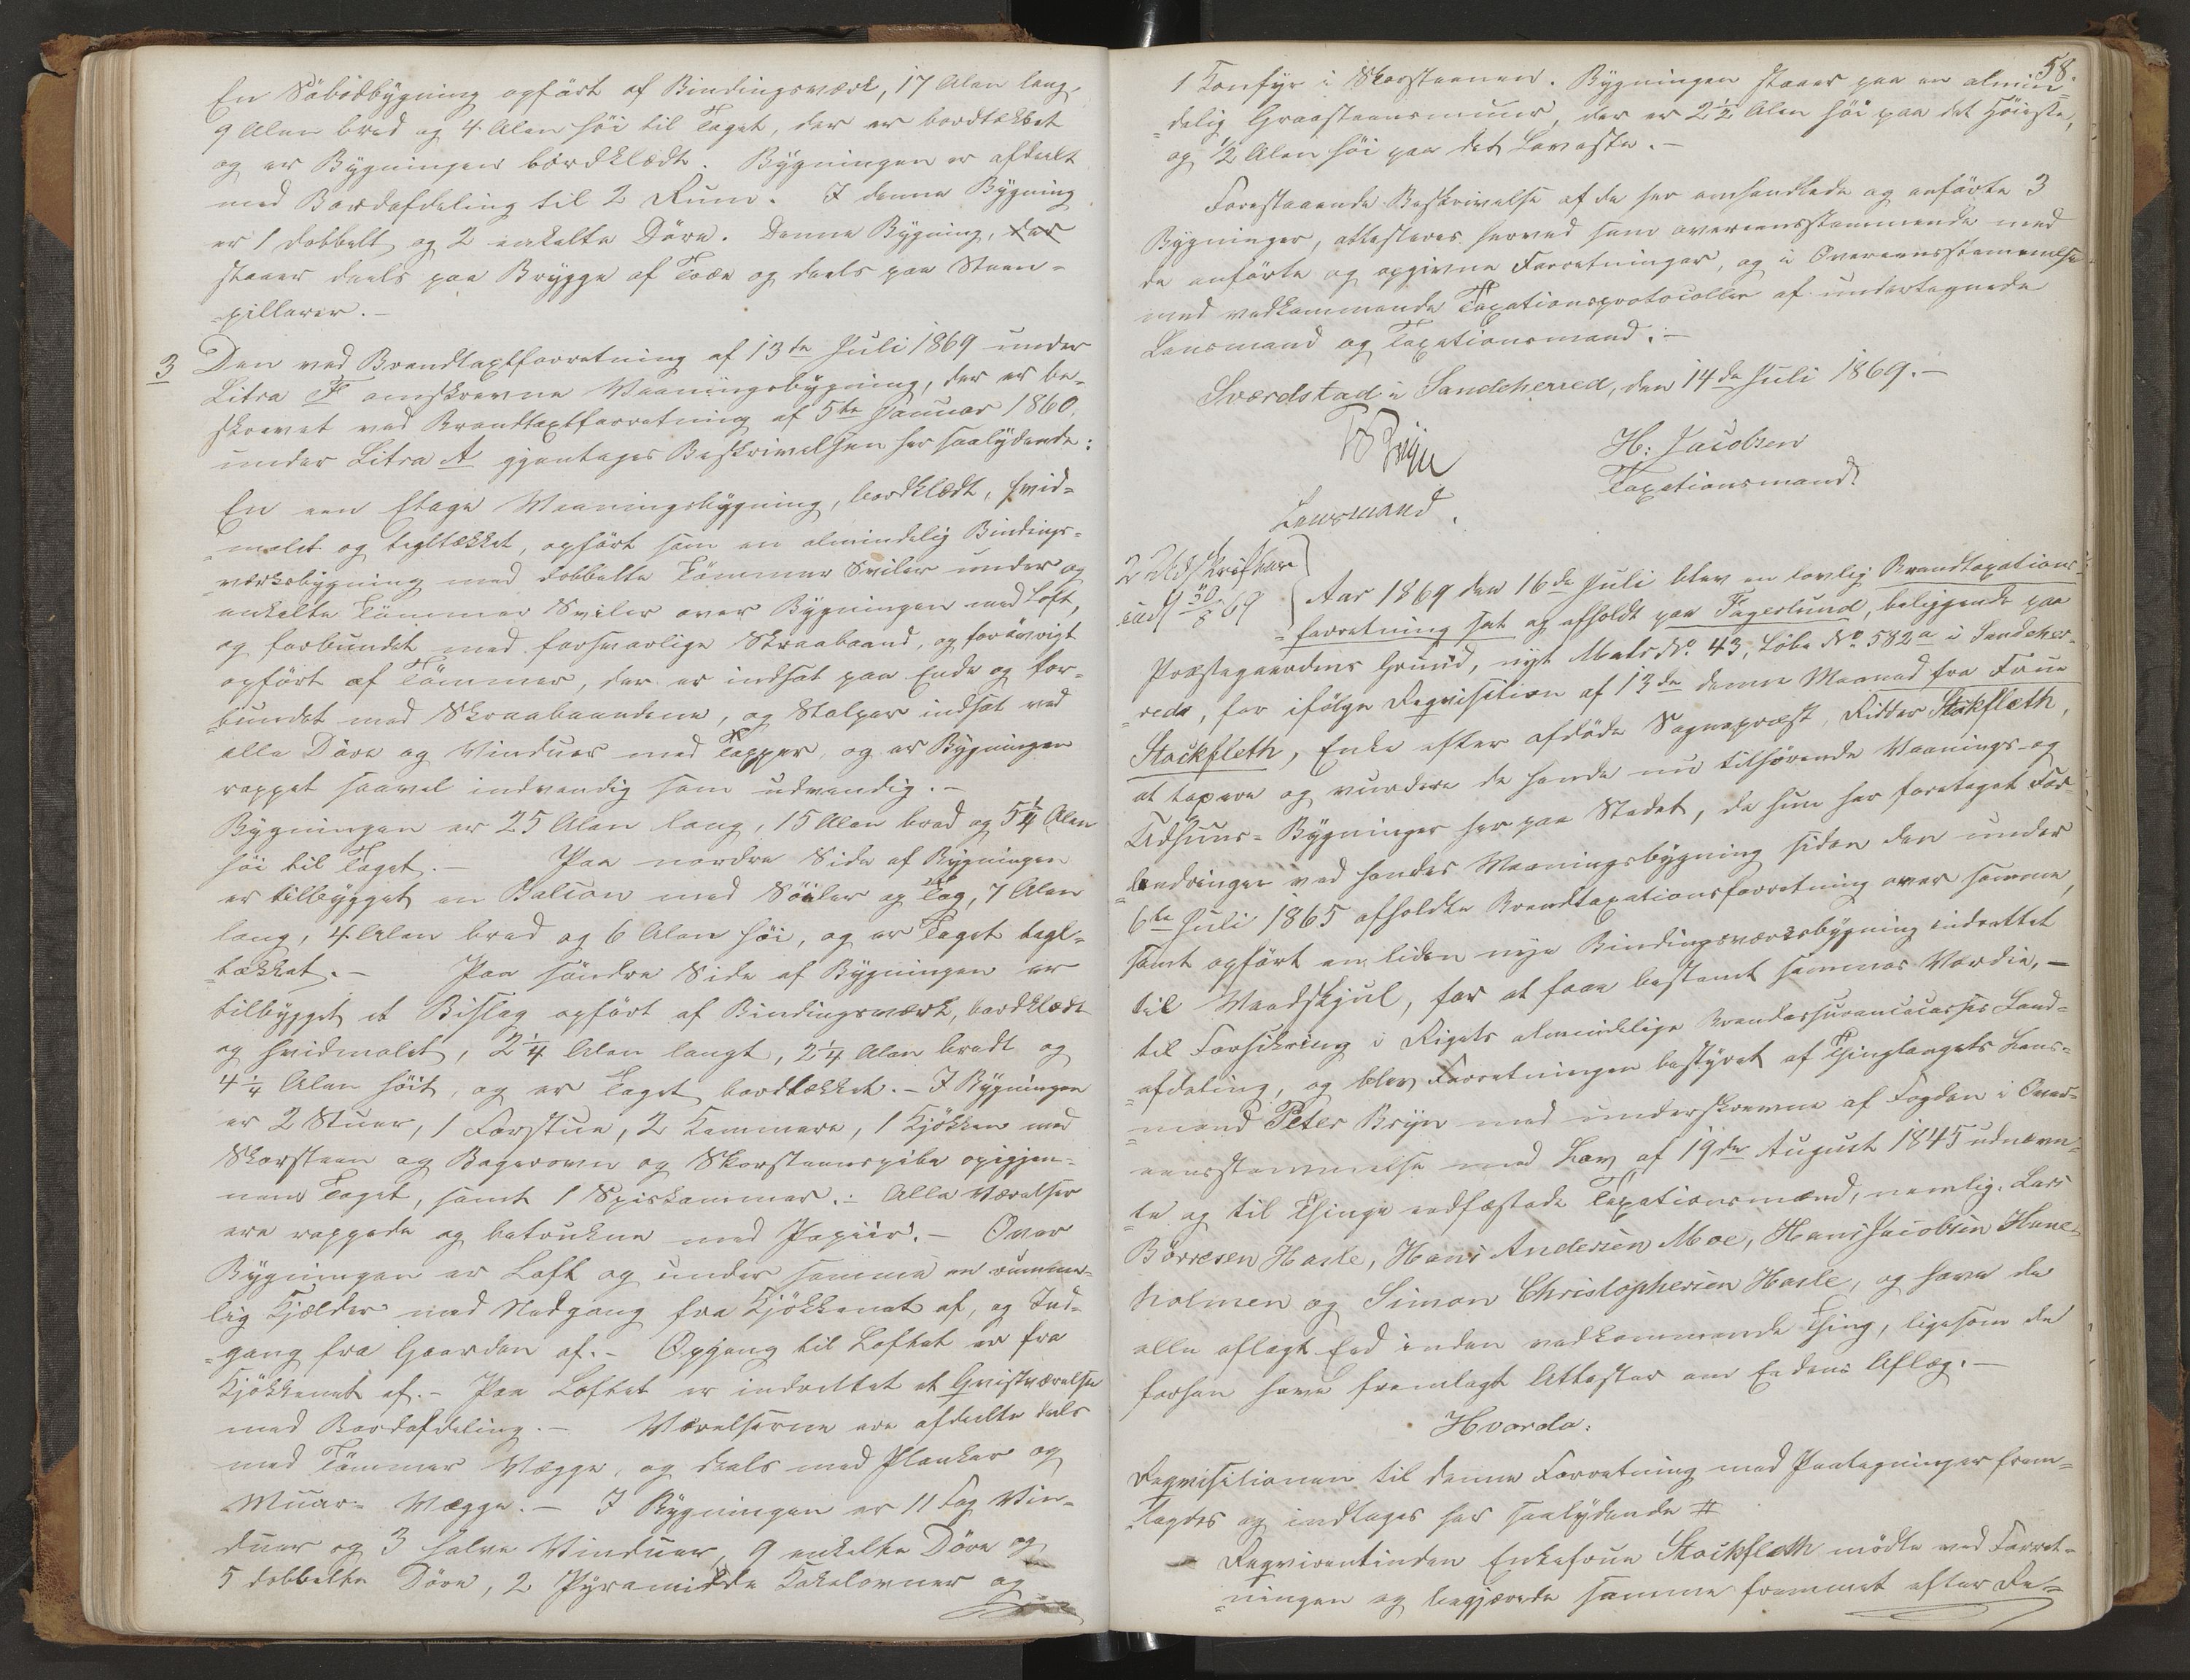 En Söbodbygning opfört af Bindingsværk, 17 Alen lang,
9 Alen bred og 4 Alen höi til Taget, der er bordtækket
og er Bygningen bordklædt. Bygningen er afdeelt
med Bordafdeling til 2 Rum. I denne Bygning
er 1 dobbelt og 2 enkelte Döre. Denne Bygning, der
staaer deels paa Brygge af Træe og deels paa Steen-
=pillarer.-
3 Den ved Brandtaxtforretning af 13de Juli 1869 under
Litra F omskrevne Vaaningsbygning, der er be-
skrevet ved Brandtaxtforretning af 5te Januar 1860.
under Litra A gjentages Beskrivelsen her saalydende:
En een Etage Vaaningsbygning, bordklædt, hvid=
=malet og tegltækket, opført som en almindelig Bindings=
=værksbygning med dobbelte Tömmer Sviler under og
enkelte Tömmer Sviler over Bygningen med Loft,
og forbundet med forsvarlige Skraabaand, og forövrigt
opfört af Tömmer, der er indsat paa Ende og for-
bundet med Skraabaandene, og Stolper indsat ved
alle Döre og Vinduer med Tapper, og er Bygningen
rappet saavel indvendig som udvendig.-
Bygningen er 25 Alen lang, 15 Alen bred og 5¼ Alen
höi til Taget.- Paa nordre Side af Bygningen
er tilbygget en Balcon med Söiler og Tag, 7 Alen
lang, 4 Alen bred og 6 Alen höi, og er Taget tegl=
=tækket.- Paa söndre Side af Bygningen er
tilbygget et Bislag opfört af Bindingsværk, bordklædt
og hvidmalet, 2¼ Alen langt, 2¼ Alen bredt og
4¼ Alen höit, og er Taget bordtækket.- I Bygningen
er 2 Stuer, 1 Forstue, 2 Kammere, 1 Kjökken med
Skorsteen og Bagerovn og Skorsteenspibe opigjen-
nem Taget, samt 1 Spiskammer.- Alle Værelser
ere rappede og betrukne med Papiir.- Over
Bygningen er Loft og under samme en rumme-
lig Kjelder med Nedgang fra Kjökkenet af, og Ind-
=gang fra Gaarden af.- Opgang til Loftet er fra
Kjökkenet af.- Paa Loftet er indrettet et Qvistværelse
med Bordafdeling.- Værelserne ere afdeelte deels
med Tömmer Vægge, og deels med Planker og
Muur= Vægge.- I Bygningen er 11 Fag Vin-
duer og 3 halve Vinduer, 9 enkelte Döre og
5 dobbelte Döre, 2 Pyramidde Kakelovner og
58.
1 Komfyr i Skorsteenen. Bygningen staaer paa en almin=
=delig Graasteensmuur, der er 2½ Alen höi paa det Höieste,
og ½ Alen höi paa det Laveste.-
Forestaaende Beskrivelse af de her omhandlede og anförte 3
Bygninger, attesteres herved som overeensstemmende med
de anförte og opgivne Forretninger, og i Overeensstemmelse
med vedkommende Taxationsprotocoller af undertegnede
Lensmand og Taxationsmand.-
Sværdstad i Sandeherred, den 14de Juli 1869.-
P Bryn
Lensmand.
H: Jacobsen
Taxationsmand.
Aar 1869 den 16de Juli blev en lovlig Brandtaxations-
=forretning sat og afholdt paa Fagerlund, beliggende paa
Præstegaardens Grund, nyt Matr No. 43, Löbe No 582a i Sandeher-
=red, for ifölge Reqvisition af 13de denne Maaned fra Frue
Stockfleth, Enke efter afdöde Sognepræst, Ridder Stokfleth,
at taxere og vurdere de hende nu tilhörende Vaanings- og
Udhuus= Bygninger her paa Stedet, da hun har foretaget For-
=andringer ved hendes Vaaningsbygning siden den under
6te Juli 1865 afholdte Brandtaxationsforretning over samme,
samt opfört en liden nye Bindingsværksbygning indrettet
til Veedskjul, for at faae bestemt sammes Værdie,-
til Forsikring i Rigets almindelige Brandassurancecasses Land-
=afdeling, og blev Forretningen bestyret af Thinglaugets Lens-
=mand Peter Bryn med underskrevne af Fogden i Over-
eensstemmelse med Lov af 19de August 1845 udnævn-
=te og til Thinge eedfæstede Taxationsmænd, nemlig: Lars
Börresen Hasle, Hans Andersen Moe, Hans Jacobsen Hane-
holmen og Simon Christophersen Hasle, og have de
alle aflagt Eed inden vedkommende Thing, ligesom de
forhen have fremlagt Attester om Eedens Aflæg.-
Hvorda:
Reqvisitionen til denne Forretning med Paategninger frem-
=lagdes og indtages her saalydende #
Reqvirentinden Enkefrue Stockfleth mödte ved Forret-
=ningen og begjærede samme fremmet efter Re-